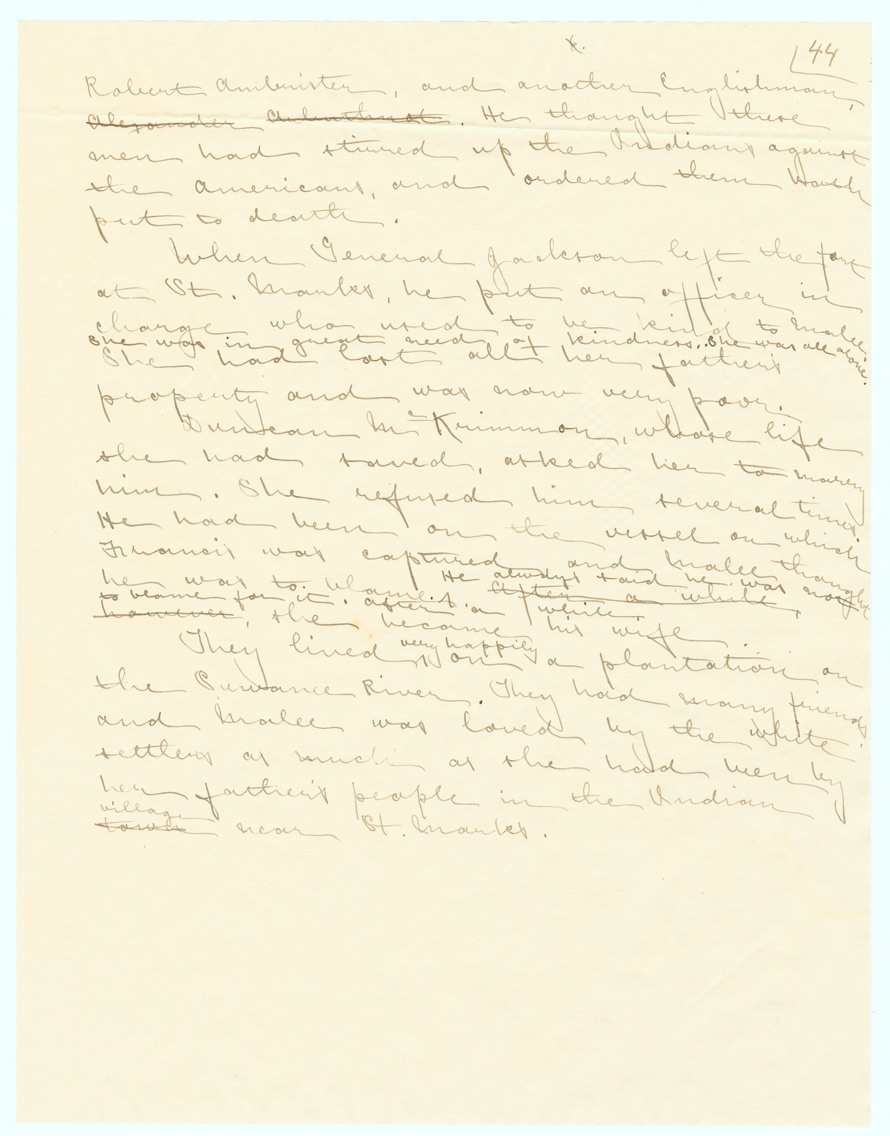 x.
44
Robert Ambrister, and another Englishman,
Alexander Arbuthnot. He thought these
men had stirred up the Indians against
the Americans, and ordered them both
put to death.
When General Jackson left the fort
at St. Marks, he put an officer in
charge who used to be kind to Malee.
She was in great need of kindness. She was all alone.
She had lost all her father's
property and was now very poor.
Duncan McKrimmon, whose life
she had saved, asked her to marry
him. She refused him several times.
He had been on the vessel on which
Francis was captured and Malee thought
he was to blame. He always said he was not
to blame for it. After a while After a while,
however, she became his wife.
They lived very happily on a plantation on
the Suwanee River. They had many friends
and Malee was loved by the white
settlers as much as she had been by
her father's people in the Indian
village
town near St. Marks.